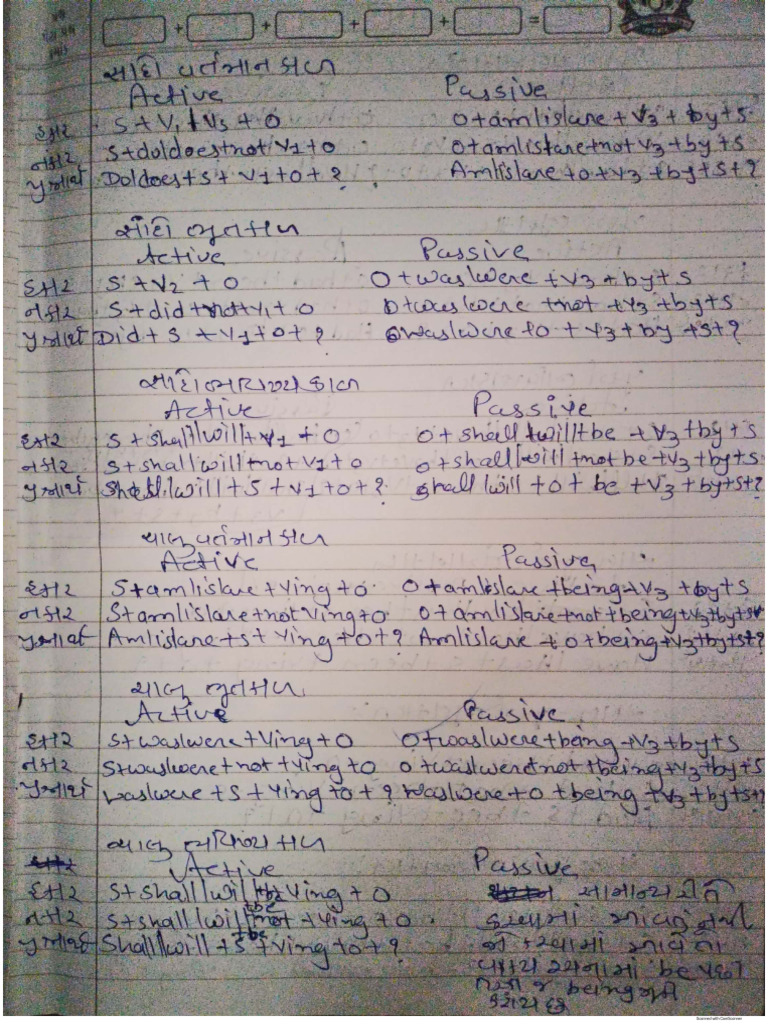 સાદો વર્તમાન કાળ
Active Passive
હકાર S + V1 / V5 + O O + am/is/are + V3 + by + S
નકાર S + do/does + not V1 + O O + am/is/are + not V3 + by + S
પ્રશ્નાર્થ Do/does + S + V1 + O + ? Am/is/are + O + V3 + by + S + ?
સાદો ભૂતકાળ
Active Passive
હકાર S + V2 + O O + was/were + V3 + by + S
નકાર S + did + not + V1 + O O + was/were + not + V3 + by + S
પ્રશ્નાર્થ Did + S + V1 + O + ? was/were + O + V3 + by + S + ?
સાદો ભવિષ્ય કાળ
Active Passive
હકાર S + shall/will + V1 + O O + shall/will + be + V3 + by + S
નકાર S + shall/will + not V1 + O O + shall/will + not be + V3 + by + S
પ્રશ્નાર્થ Shall/will + S + V1 + O + ? Shall/will + O + be + V3 + by + S + ?
ચાલુ વર્તમાન કાળ
Active Passive
હકાર S + am/is/are + Ving + O O + am/is/are + being + V3 + by + S
નકાર S + am/is/are + not Ving + O O + am/is/are + not + being + V3 + by + S
પ્રશ્નાર્થ Am/is/are + S + Ving + O + ? Am/is/are + O + being + V3 + by + S + ?
ચાલુ ભૂતકાળ
Active Passive
હકાર S + was/were + Ving + O O + was/were + being + V3 + by + S
નકાર S + was/were + not + Ving + O O + was/were + not + being + V3 + by + S
પ્રશ્નાર્થ was/were + S + Ving + O + ? was/were + O + being + V3 + by + S + ?
ચાલુ ભવિષ્ય કાળ
Active Passive
હકાર S + shall/will + be + Ving + O સામાન્ય રીતે
નકાર S + shall/will + not + be + Ving + O કરવામાં આવતું નથી
પ્રશ્નાર્થ Shall/will + S + be + Ving + O + ? જો કરવામાં આવે તો
વાક્ય રચનામાં be પછી
being
Scanned with CamScanner